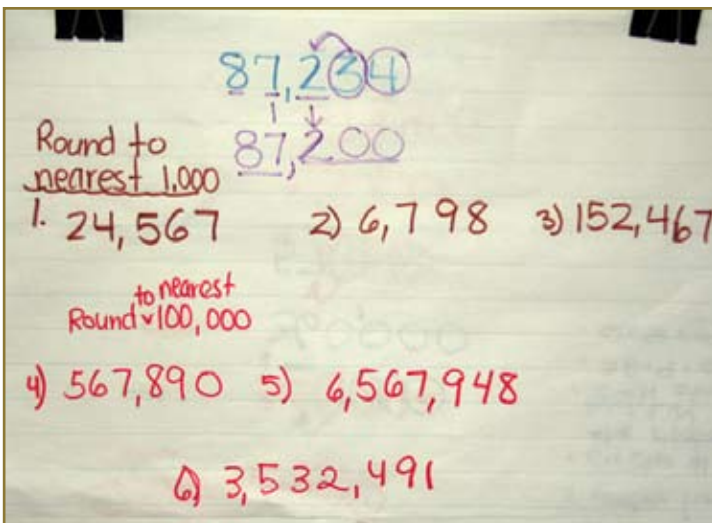 87,234
87,200
Round to
nearest 1,000
1. 24,567 2) 6,798 3) 152,467
to nearest
Round 100,000
4) 567,890 5) 6,567,948
6) 3,532,491